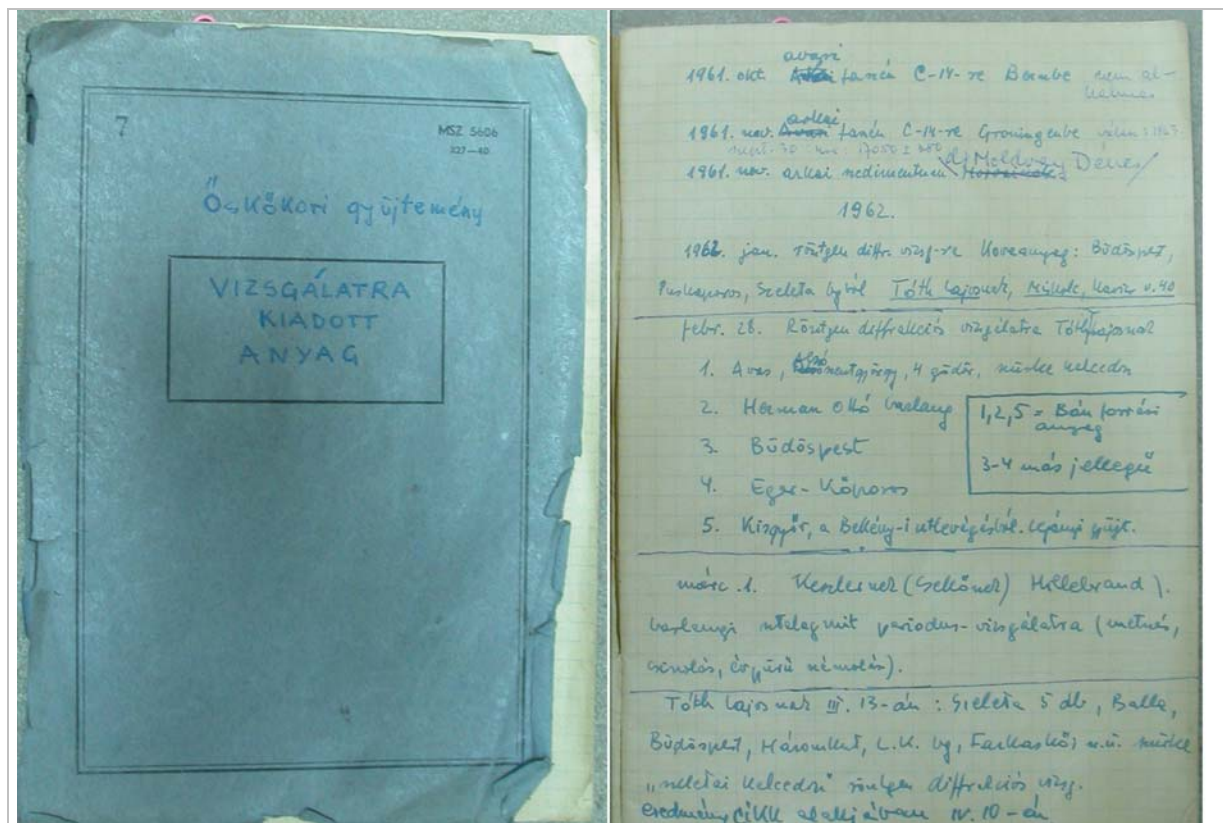 7
MSZ 5606
Őskőkori gyüjtemény
VIZSGÁLATRA
KIADOTT
ANYAG
avasi
1961. okt. faszén C-14-re Bernbe nem al-
kalmas
arkai
1961. nov. Avasi faszén C-14-re Groningenbe
1961. nov. arkai sedimentum dr Moldvay Dénes/
1962.
1962. jan. röntgen diffr. vizsg-re Kovaanyag: Büdöspest,
Puskaporos, Szeleta bgból Tóth Lajosnak, Miskolc,
febr. 28. Röntgen diffrakciós vizsgálatra Tóth Lajosnak
Alsó
1. Avas, szentgyörgy, 4 gödör, szürke kalcedon
2. Herman Ottó barlang
3. Büdöspest
4. Eger-Kőporos
5. Kisgyőr, a útbevágásból. gyüjt.
1,2,5 = Bán forrási
anyag
3-4 más jellegű
márc. 1. Keslernek (Selkőnek) Hillebrand J.
barlangi sztalagmit periodus-vizsgálatra (metszés,
csiszolás, évgyűrű számolás).
Tóth Lajosnak III. 13-án: Szeleta 5 db, Balla,
Büdöspest, Háromkút, L.K. bg, Farkaskő; u.ú. szürke
„szeletai kalcedon" röntgen diffrakciós vizsg.
eredmény cikk alakjában IV. 10-én